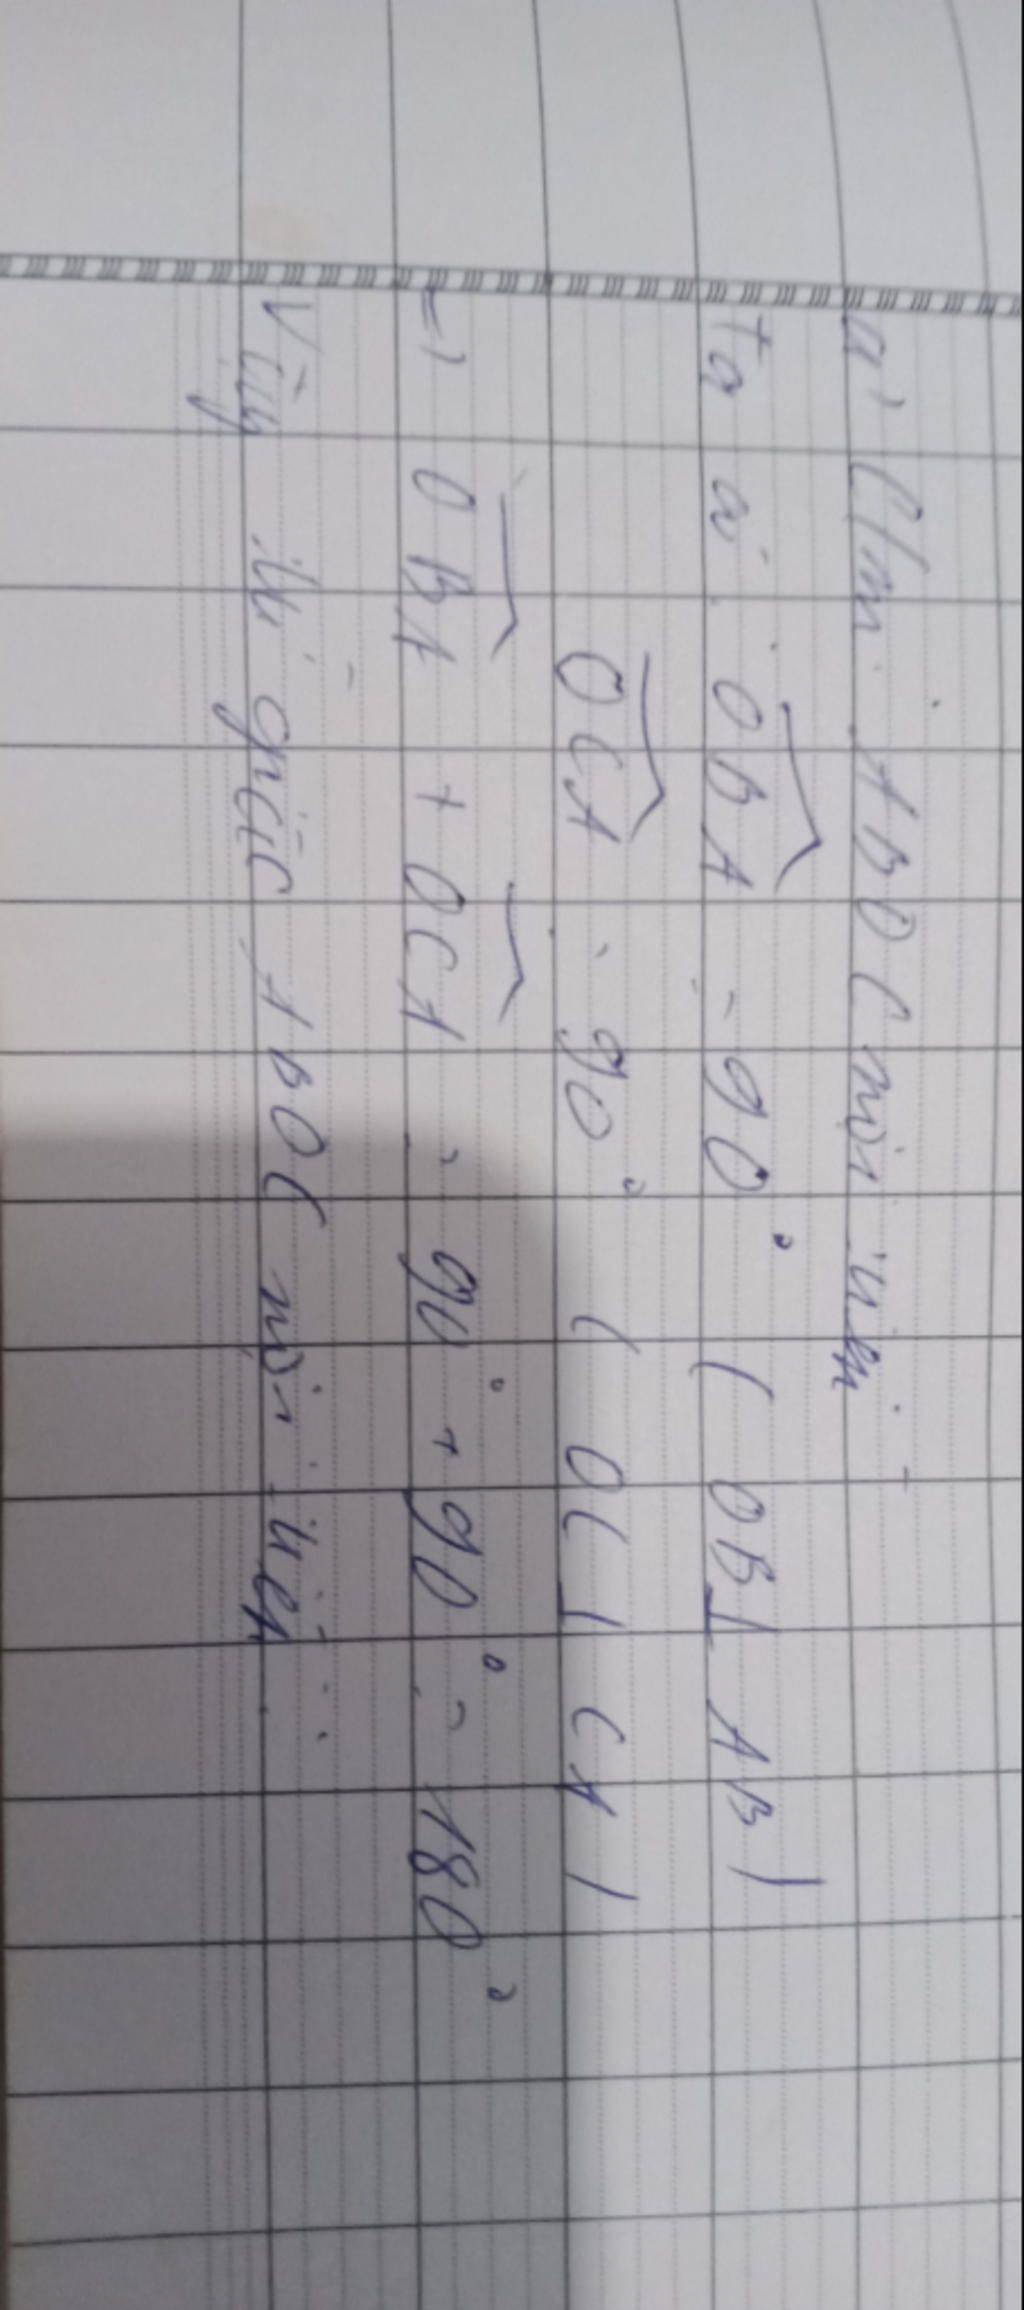 a) C/m: ABOC nội tiếp
Ta có: OBA = 90° (OB⊥AB)
OCA = 90° (OC⊥CA)
=> OBA + OCA = 90° + 90° = 180°
Vậy tứ giác ABOC nội tiếp